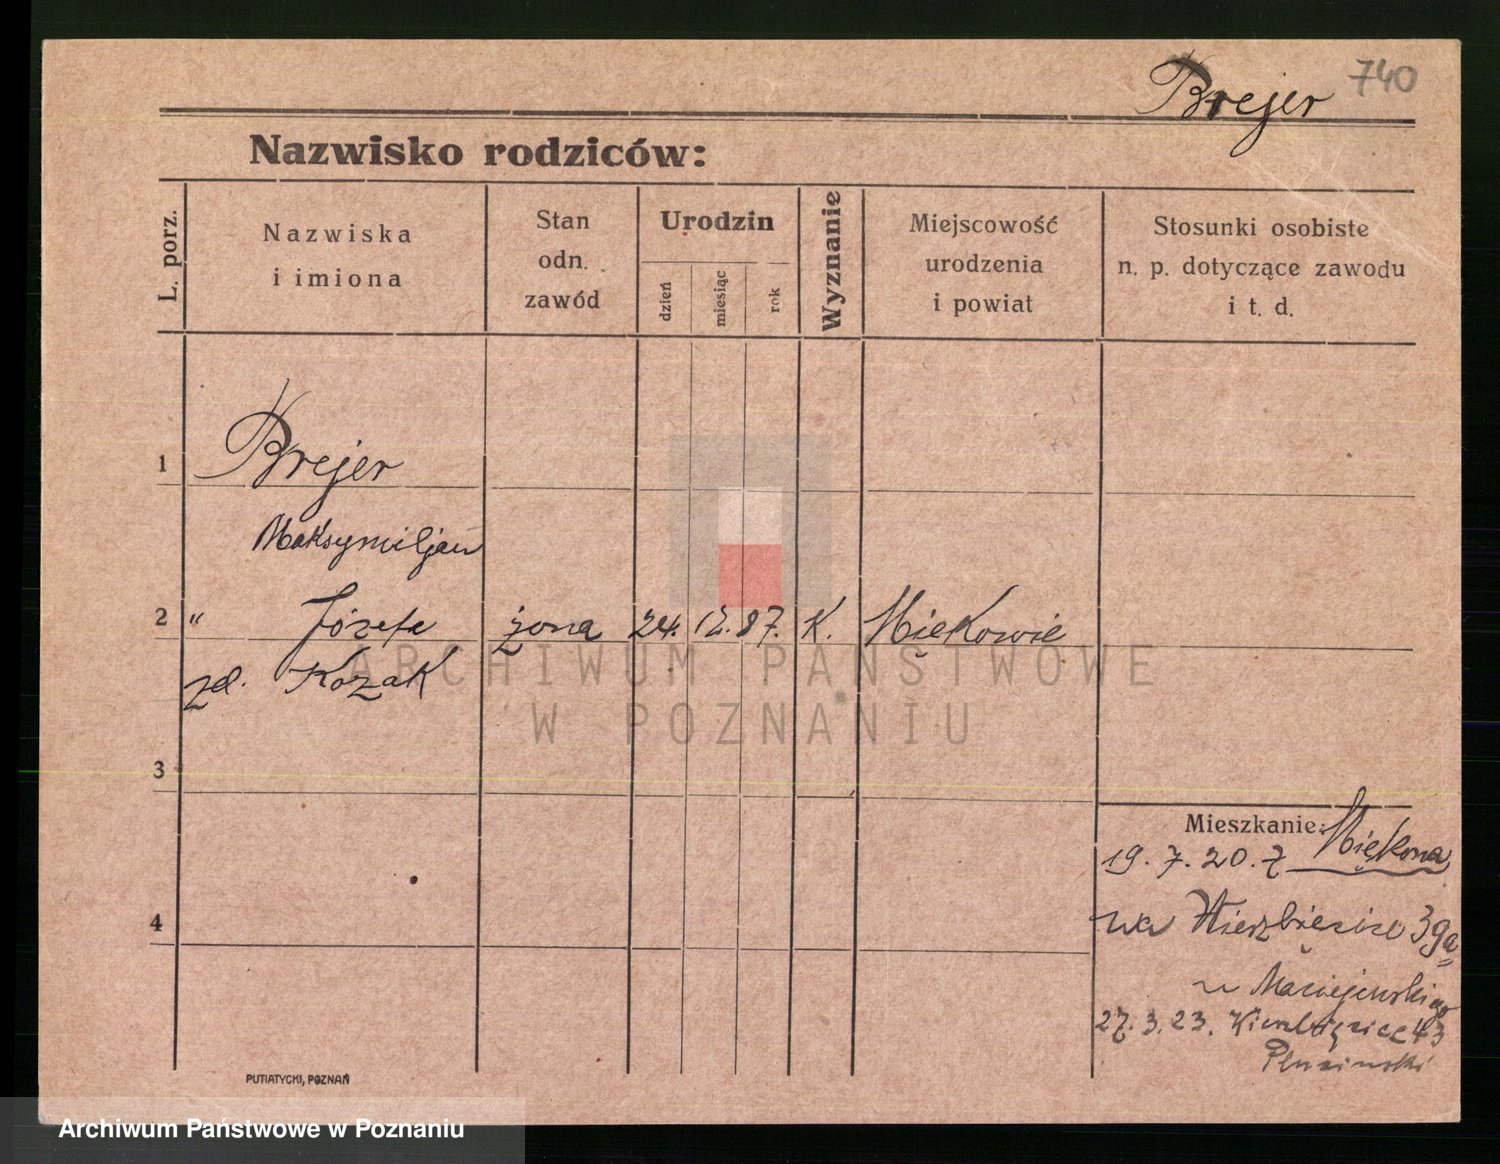 Brejer 740
Nazwisko rodziców:
L. porz.
Nazwiska
i imiona
Stan
odn.
zawód
Urodzin
dzień
miesiąc
rok
Wyznanie
Miejscowość
urodzenia
i powiat
Stosunki osobiste
n. p. dotyczące zawodu
i t. d.
1 Brejer
Maksymiljan
2 " Józefa żona 24. 12. 87. K. Miękowie
zd. Kozak
ARCHIWUM PAŃSTWOWE
W POZNANIU
3
Mieszkanie:
19. 7. 20. z Miękowa
na Wierzbięcice 39a
4
u Maciejewskiego
27. 3. 23. Wierzbięcice 43
PUTIATYCKI, POZNAŃ
Archiwum Państwowe w Poznaniu